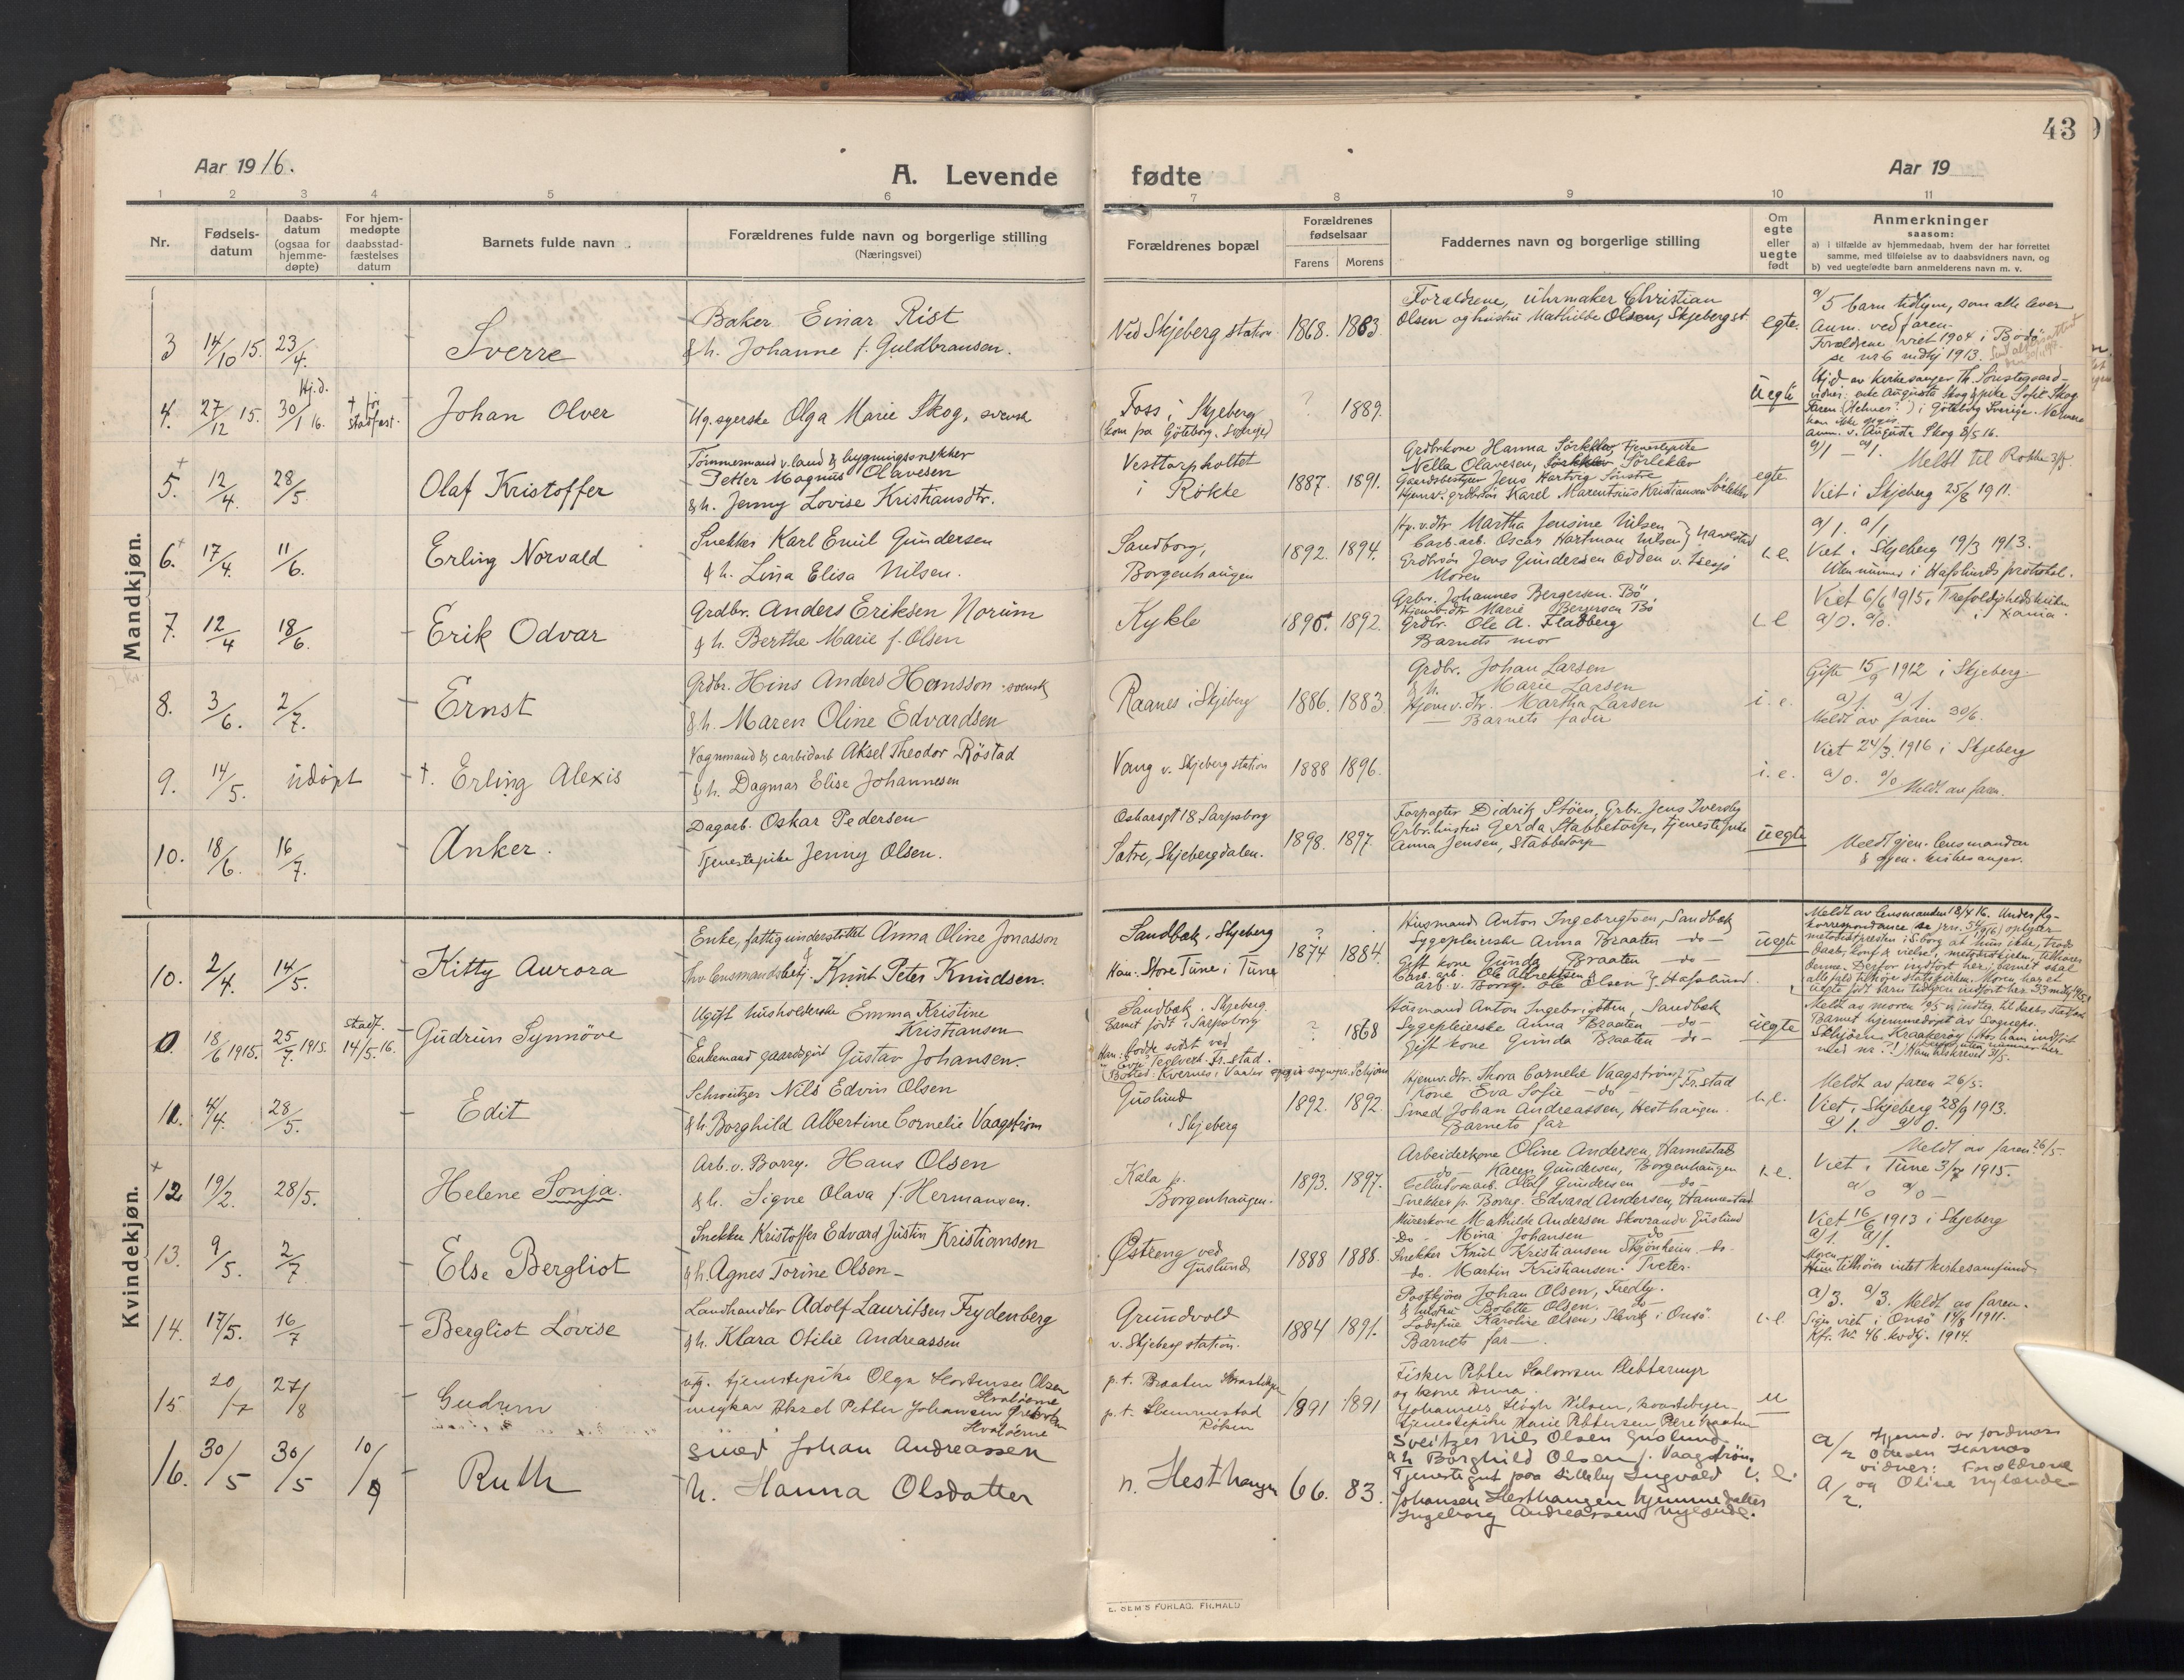 43
Aar 1916.
A. Levende fødte
Aar 19
1 2 3 4 5 6 7 8 9 10 11
Nr.
Fødsels-
datum
Daabs-
datum
(ogsaa for
hjemme-
døpte)
For hjem-
medøpte
daabsstad-
fæstelses
datum
Barnets fulde navn
Forældrenes fulde navn og borgerlige stilling
(Næringsvei)
Forældrenes bopæl
Forældrenes
fødselsaar
Farens Morens
Faddernes navn og borgerlige stilling
Om
egte
eller
uegte
født
Anmerkninger
saasom:
a) i tilfælde av hjemmedaab, hvem der har forrettet
samme, med tilføielse av to daabsvidners navn, og
b) ved uegtefødte barn anmelderens navn m. v.
Mandkjøn.
3 14/10 15. 23/4. Sverre
Baker Einar Rist
& h. Johanne f. Guldbransen.
Ved Skjeberg station 1868. 1883.
Forældrene, uhrmaker Christian
Olsen og hustru Mathilde Olsen, Skjeberg st.
egte.
a/ 5 barn tidligere, som alle lever
Anm. ved faren.
Forældrene viet 1904 i Bodö
se nr 6 mdkj 1913.
4. 27/12 15. Hj.d. 30/1 16. † før stadfæst. Johan Olver
Ug. syerske Olga Marie Skog, svensk
Foss i Skjeberg
(kom fra Göteborg, Sverige)
? 1889.
Uegte
Hj.d. av kirkesanger Th. Sönstegaard
anm. v. Augusta Skog 8/5 16.
5. † 12/4. 28/5. Olaf Kristoffer
Tömmermand v. land & bygningssnekker
Petter Magnus Olavesen
& h. Jenny Lovise Kristiansdtr.
Vesttorpholtet
i Rokke
1887. 1891.
Grdbrkone Hanna Sörlekleo, tjenestepike
Nella Olavesen, Sörlekleo
Gaardsbestyrer Jens Hartvig
egte
a/1 — a/1.
Meldt til Rokke 3/5
Viet i Skjeberg 25/8 1911.
6. † 17/4. 11/6. Erling Norvald
Snekker Karl Emil Gundersen
& h. Lina Elisa Nilsen.
Sandborg,
Borgenhaugen
1892. 1894.
Hj.v.dtr. Martha Jensine Nilsen
Carb.arb. Oscar Hartman Nilsen
Moren
i.e.
a/1. a/1.
Viet i Skjeberg 19/3 1913.
Uten nummer i Hafslunds protokol.
7. 12/4 18/6. Erik Odvar
Grdbr. Anders Eriksen Norum
& h. Berthe Marie f. Olsen
Kykle
1895. 1892.
Grbr. Johannes Bergersen. Bö
Hjemv.dtr. Marie Bergersen Bö
Grdbr. Ole A. Fladberg
Barnets mor
i.e
Viet 6/6 1915 i Trefoldighedskirken
i Xania.
a/0. a/0.
8. 3/6. 2/7. Ernst
Grdbr. Hins Anders Hansson, svensk
& h. Maren Oline Edvardsen
Raanes i Skjeberg 1886. 1883.
Grdbr. Johan Larsen
& h. Marie Larsen
Hjemv.dtr. Martha Larsen
— Barnets fader
i. e.
Gifte 15/9 1912 i Skjeberg.
a/1. a/1.
Meldt av faren 30/6.
9. 14/5. udöpt †. Erling Alexis
Vognmand & carbidarb Aksel Theodor Röstad
& h. Dagmar Elise Johannesen
Vang v. Skjeberg station 1888 1896.
i. e.
Viet 24/3. 1916 i Skjeberg
a/0. a/0 Meldt av faren.
10. 18/6. 16/7. Anker.
Dagarb. Oskar Pedersen
Tjenestepike Jenny Olsen.
Oskarsgt 18, Sarpsborg
Satre, Skjebergdalen.
1898. 1897.
Forpagter Didrik Stöen, Grbr. Jens Iversby
Grbr.hustru Gerda Stabbetorp, tjenestepike
Anna Jensen, Stabbetorp
Uegte
Meldt gjen. lensmanden
& gjen. kirkesanger.
Kvindekjøn.
10. 2/4. 14/5. Kitty Aurora
Enke, fattigunderstöttet Anna Oline Jonasson
&
fhv. lensmandsbetj. Knut Peter Knudsen.
Sandbæk, Skjeberg
Han: Store Tune i Tune
? 1874 1884.
Husmand Anton Ingebrigtsen, Sandbæk
Sygepleierske Anna Braaten —do—
Gift kone Gunda Braaten —do—
Carb. arb. Ole Albrektsen
arb. v. Borreg. Ole Olsen } Hafslund.
Uegte
Meldt av lensmanden 18/4 16.
0. 18/6 1915. 25/7 1915. stadf. 14/5. 16. Gudrun Synnöve
Ugift husholderske Emma Kristine
Kristiansen
Enkemand gaardsgut Gustav Johansen.
Sandbæk, Skjeberg.
Barnet födt i Sarpsborg
Han: bodde sidst ved
? 1868
Husmand Anton Ingebrigtsen, Sandbæk
Sygepleierske Anna Braaten —do—
Gift kone Gunda Braaten —do—
Uegte
Barnet hjemmedöpt av Sogneprs.
11. 4/4. 28/5. Edit
Schweitzer Nils Edvin Olsen
& h. Borghild Albertine Cornelie Vaagström
Guslund
i Skjeberg
1892. 1892
Hjemv. dtr. Thora Cornelie Vaagström } Fr.stad
Kone Eva Sofie —do—
Smed Johan Andreassen, Hesthaugen.
Barnets far
i.e.
Meldt av faren 26/5.
Viet i Skjeberg 28/9 1913.
a/1. a/0.
† 12 19/2. 28/5. Helene Sonja.
Arb. v. Borreg. Hans Olsen
& h. Signe Olava f. Hermansen.
Kala p.
Borgenhaugen.
1893. 1897.
Arbeiderkone Oline Andersen, Hannestad
do Karen Gundersen, Borgenhaugen
Cellulosearb. Olaf Gundersen —do—
Snekker p. Borreg. Edvard Andersen, Hannestad
i.e.
Meldt av faren 26/5.
Viet i Tune 3/4 1915.
a/0 a/0 —
13. 9/5. 2/7 Else Bergliot
Snekker Kristoffer Edvard Justin Kristiansen
& h. Agnes Torine Olsen —
Østreng ved
Guslund
1888 1888.
Murerkone Mathilde Andersen Skovrand v. Guslund
do - Mina Johansen do
Snekker Knut Kristiansen Skjönheim - do-
do. Martin Kristiansen. Tveter.
Viet 16/6 1913 i Skjeberg
a/1. a/1.
Moren
tilhörer intet kirkesamfund.
14. 17/5. 16/7 Bergliot Lovise
Landhandler Adolf Lauritsen Frydenberg
& h. Klara Otilie Andreassen
Grundvold
v. Skjeberg station.
1884 1891.
Postkjörer Johan Olsen, Fredly.
& hustru Bolette Olsen. do—
Karoline Olsen, Slevik i Onsö
Barnets far —
i.e
a/3. a/3. Meldt av faren.
Sign viet i Onsö 14/8 1911.
Kfr. Nr. 46. kvdkj. 1914.
15 20/7 27/8 Gudrun
ug. tjenestepike Olga Hortense Olsen
Hvalöerne
ungkar Aksel Petter Johansen
Hvalöerne
p. t. Braaten
p. t. Slemmestad
Röken
1891 1891
Fisker Petter
og kone Anna.
Johannes Högh Nilsen,
tjenestepike Marie Pettersen
u
16. 30/5 30/5 10/9 Ruth
Smed Johan Andreassen
h. Hanna Olsdatter
n. Hesthaugen 66. 83.
Sveitzer Nils Olsen Guslund
& h Borghild Olsen f. Vaagström
Tjenestegut paa Lilleby Ingvald
Johansen Hesthaugen hjemmedatter
Ingeborg Andreassen Nylænde.
i. e.
a/2 Hjemd. av jordmor
Ottesen
vidner: Forældrene
a/2. og Oline Nylænde
E. SEM'S FORLAG, FR.HALD